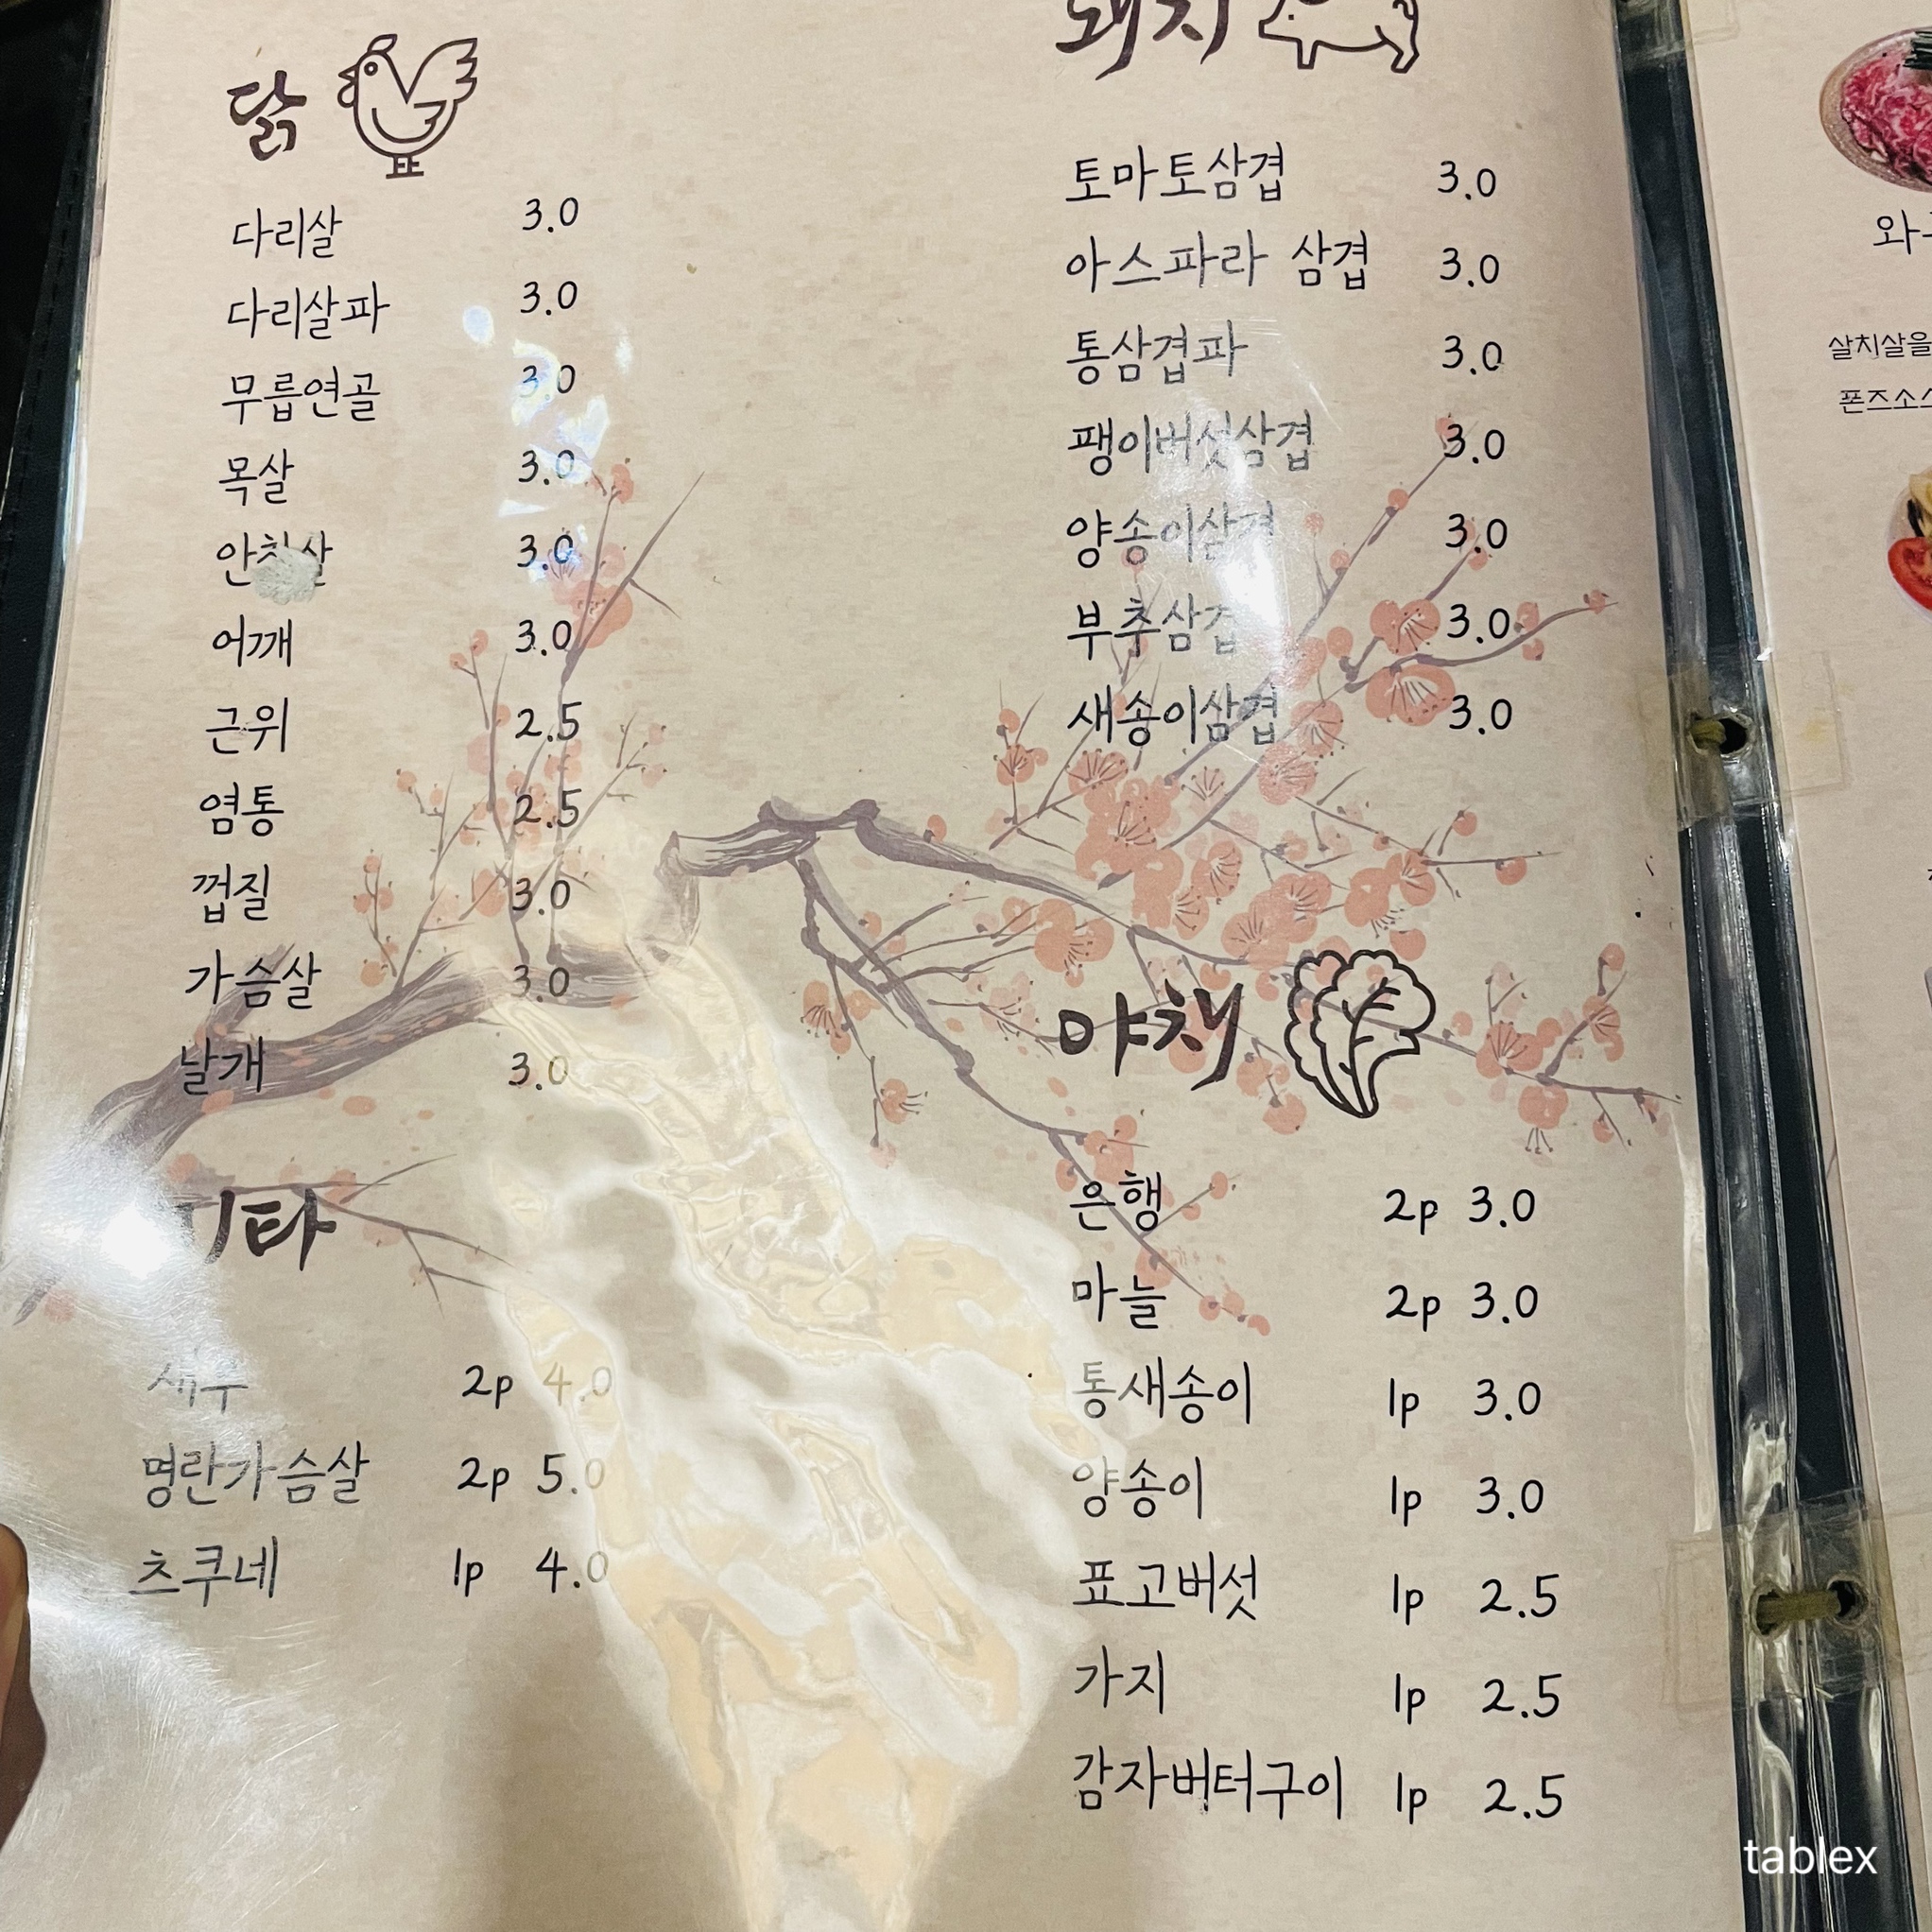 닭
다리살 3.0
다리살파 3.0
무릅연골 3.0
목살 3.0
안창살 3.0
어깨 3.0
근위 2.5
염통 2.5
껍질 3.0
가슴살 3.0
날개 3.0
기타
새우 2p 4.0
명란가슴살 2p 5.0
츠쿠네 1p 4.0
돼지
토마토삼겹 3.0
아스파라 삼겹 3.0
통삼겹파 3.0
팽이버섯삼겹 3.0
양송이삼겹 3.0
부추삼겹 3.0
새송이삼겹 3.0
야채
은행 2p 3.0
마늘 2p 3.0
통새송이 1p 3.0
양송이 1p 3.0
표고버섯 1p 2.5
가지 1p 2.5
감자버터구이 1p 2.5
살치살을
tablex